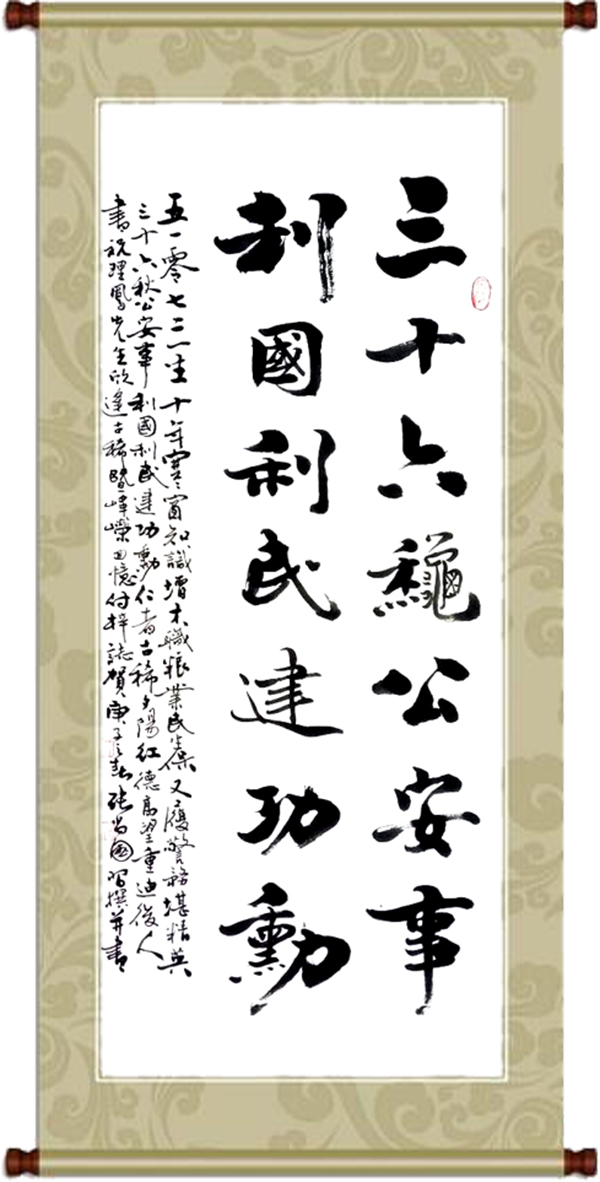 三十六龝公安事
利國利民建功勳
五一零七三二生十年寒窗知識增木職粮業民 又履警務堪精英
三十六秋公安事利國利民建功勳仁者古稀夕陽紅德高望重迪後人
書祝理鳳先生欣逢古稀暨崢嶸回憶付梓誌賀庚子 張 國 撰并書